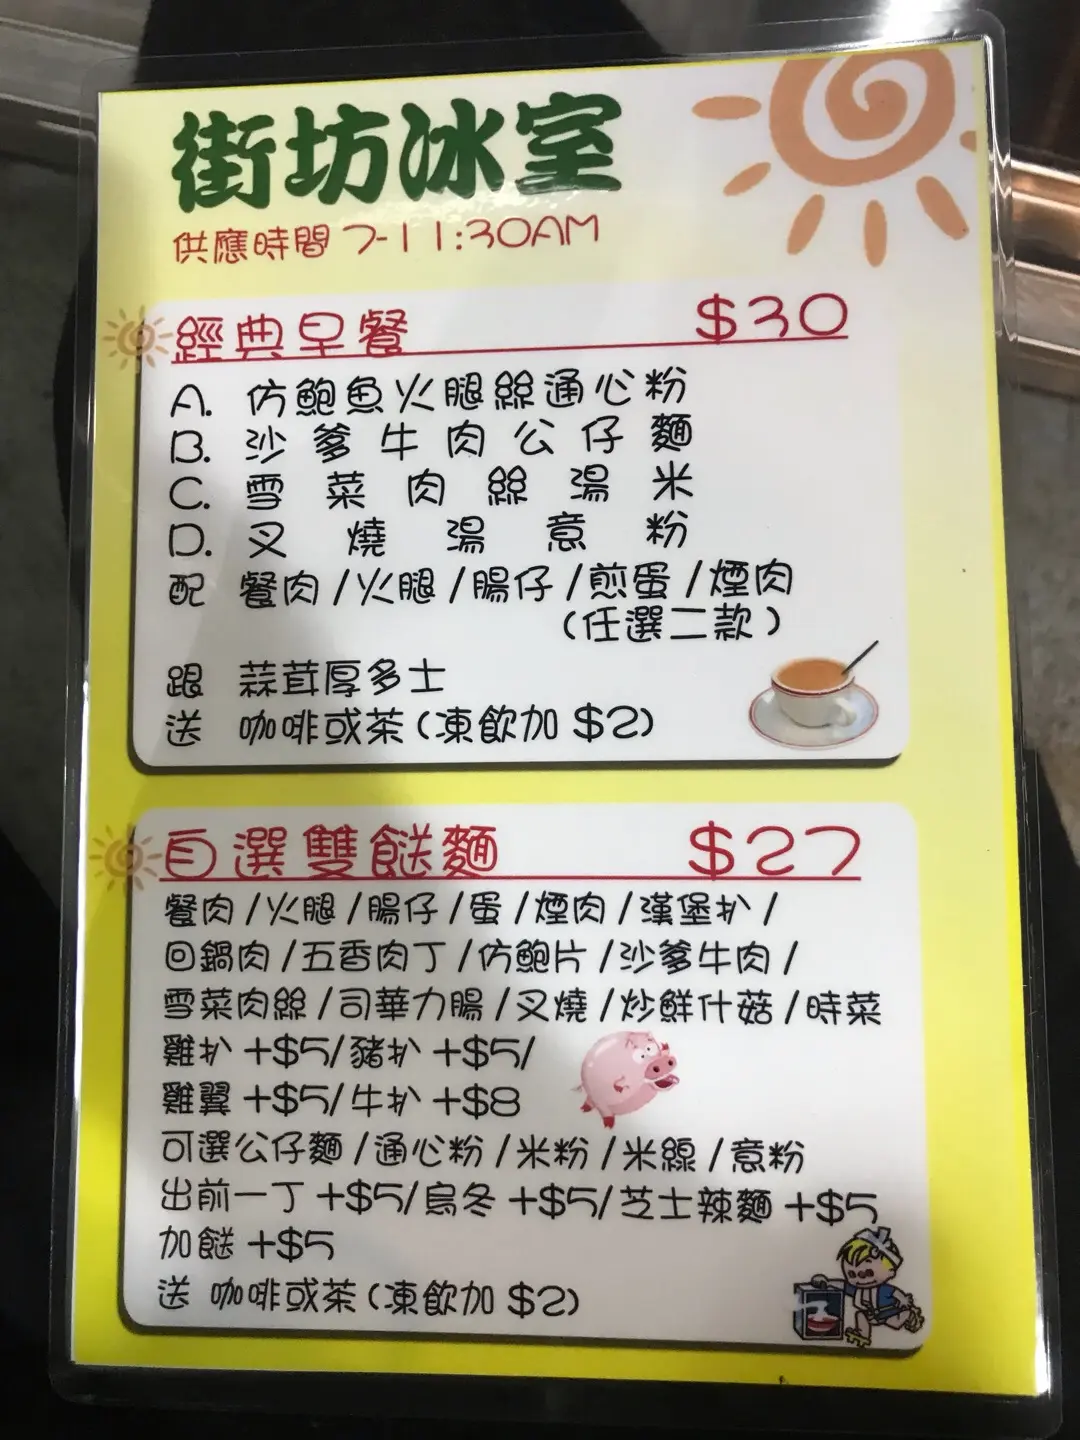 街坊冰室
供應時間 7-11:30AM
經典早餐 $30
A. 仿鮑魚火腿絲通心粉
B. 沙爹牛肉公仔麵
C. 雪菜肉絲湯米
D. 叉燒湯意粉
配 餐肉/火腿/腸仔/煎蛋/煙肉
(任選二款)
跟 蒜茸厚多士
送 咖啡或茶(凍飲加 $2)
自選雙餸麵 $27
餐肉/火腿/腸仔/蛋/煙肉/漢堡扒/
回鍋肉/五香肉丁/仿鮑片/沙爹牛肉/
雪菜肉絲/司華力腸/叉燒/炒鮮什菇/時菜
雞扒 +$5/豬扒 +$5/
雞翼 +$5/牛扒 +$8
可選公仔麵/通心粉/米粉/米線/意粉
出前一丁 +$5/烏冬 +$5/芝士辣麵 +$5
加餸 +$5
送 咖啡或茶(凍飲加 $2)